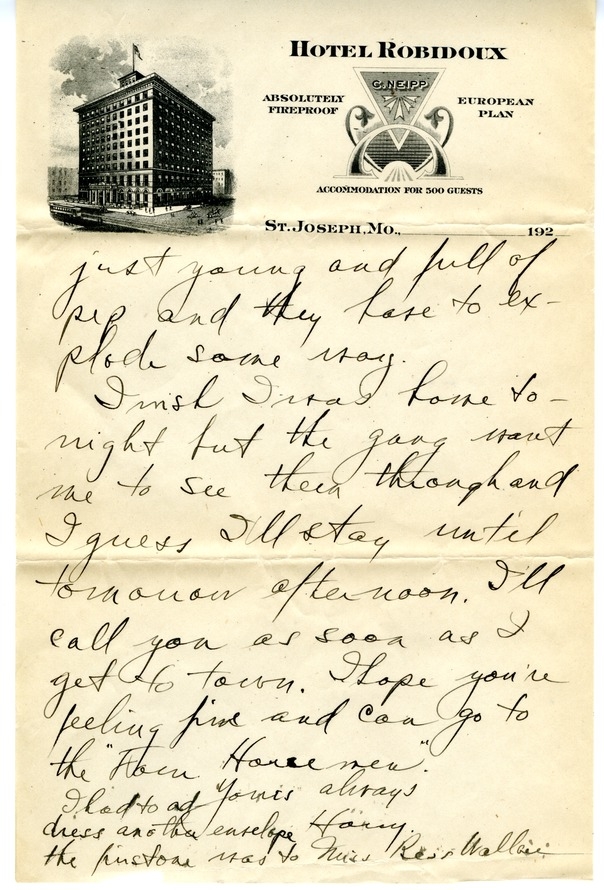 HOTEL ROBIDOUX
C. NEIPP
ABSOLUTELY FIREPROOF
EUROPEAN PLAN
ACCOMMODATION FOR 500 GUESTS
ST. JOSEPH, MO., 192
just young and full of
pep and they have to ex-
plode some way.
I wish I was home to-
night but the gang want
me to see them through and
I guess I'll stay until
tomorrow afternoon. I'll
call you as soon as I
get to town. I hope you're
feeling fine and can go to
the "Four Horsemen".
Yours always
Harry.
I had to ad
dress another envelope
the first one was to Miss Bess Wallace